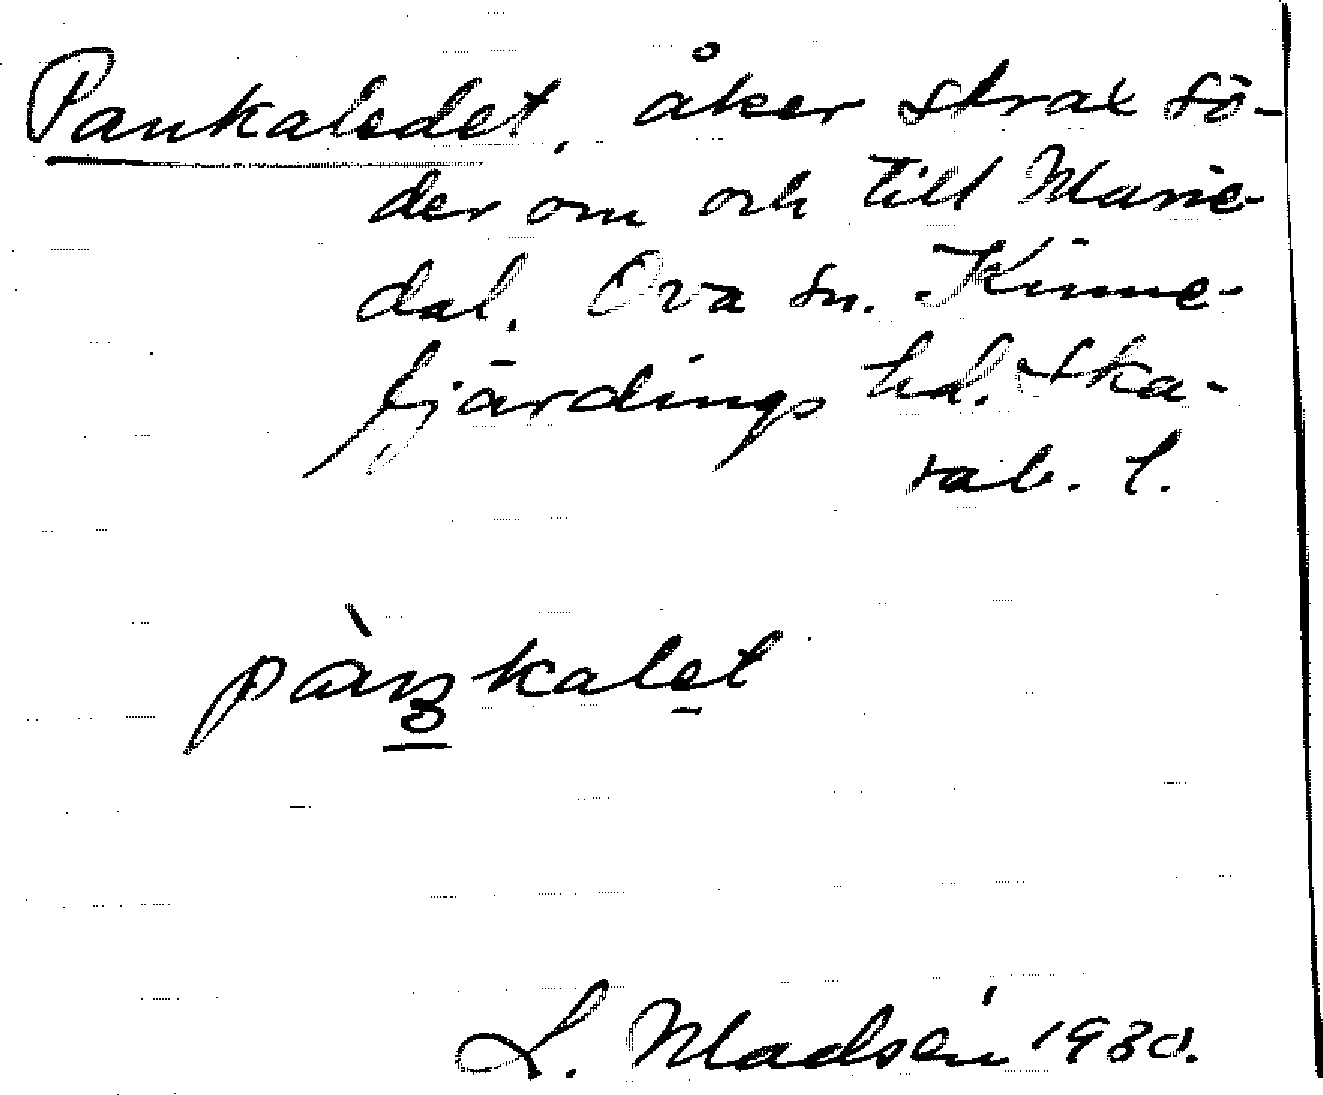 Pankaledet, åker strax sö-
der om och till Marie-
dal. Ova sn. Kinne-
fjärdings hd. Ska-
rab. l.
L. Madsén 1930.